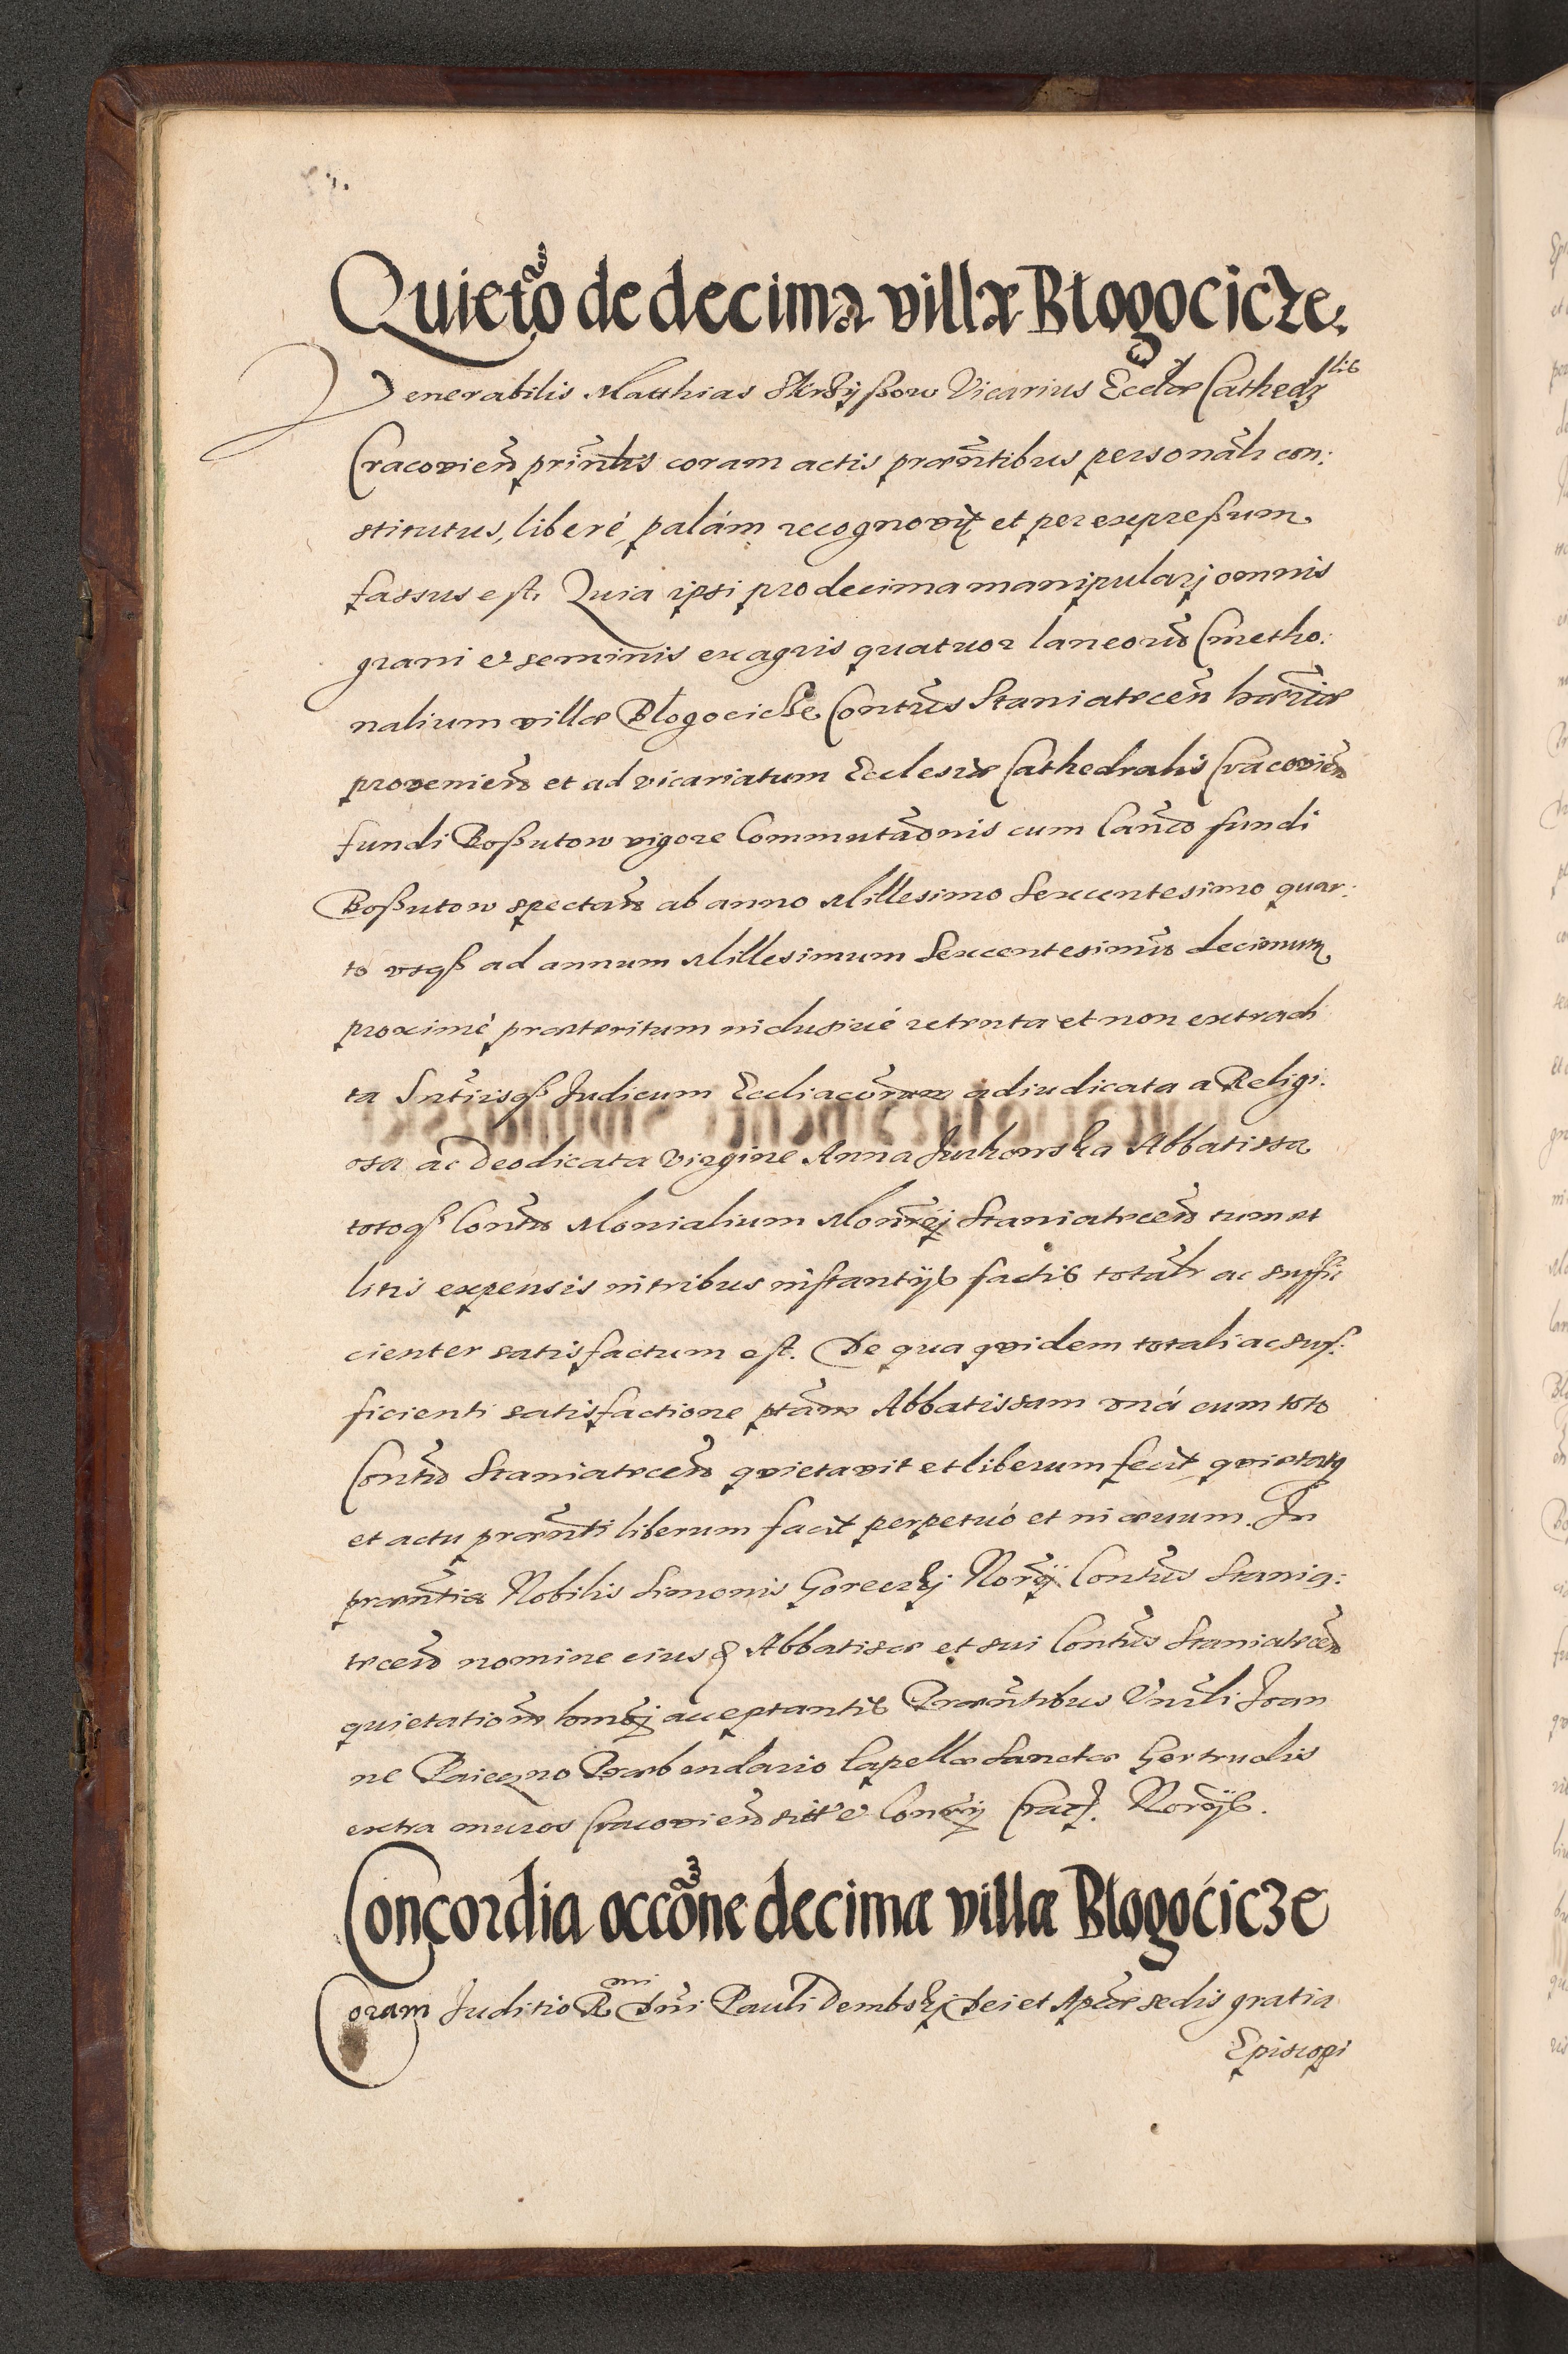 Quietão de decima villæ Błogocicze.
Venerabilis Matthias Skrzÿßow Vicarius Ecclæ Cathedrlis
Cracovien coram actis præñtibus personalr con:
stitutus, liberé, palám recognovit et per expreßum
fassus est. Quia ipsi pro decima manipularj omnis
grani et seminis ex agris quatuor laneorũ Cmetho:
nalium villæ Błogocicze Contũs Staniatecen
provenien et ad vicariatum Ecclesiæ Cathedralis Cracovien
fundi Boßutow vigore Commutãonis cum fundi
Boßutow spectan ab anno Millesimo Sexcentesimo quar:
to usqß ad annum Millesimum Sexcentesimũ decimum
proximè præteritum inclusiué retenta et non extradi
ta Sñtiisqß Judicum adiudicata a Religi:
osa ac Deodicata Virgine Anna Abbatissa
totoqß Contũ Monialium Monrij Staniatecen tum et
litis expensis in tribus instantijs factis totalr ac suffi
cienter satisfactum est. De qua quidem totali ac suf:
ficienti satisfactione ptam Abbatissam uná cum toto
Contũ Staniatecen quietavit et liberum fecit, quietatq
et actu præñti liberum facit perpetuó et in ævum. In
præñtia Nobilis Simonis Goreczkj Norij Contũs Stania:
tecen nomine eius Abbatissæ et sui Contũs Staniatecen
quietationem acceptantis Præñtibus Joan
ne Præbendario Capellæ Sanctæ Gertrudis
extra muros Cracovien Norijs.
Concordia occõne decimæ villæ Błogocicze
Coram Juditio Rmi Dñi Pauli Dembskj Dei et Aplcæ sedis gratia
Episcopi